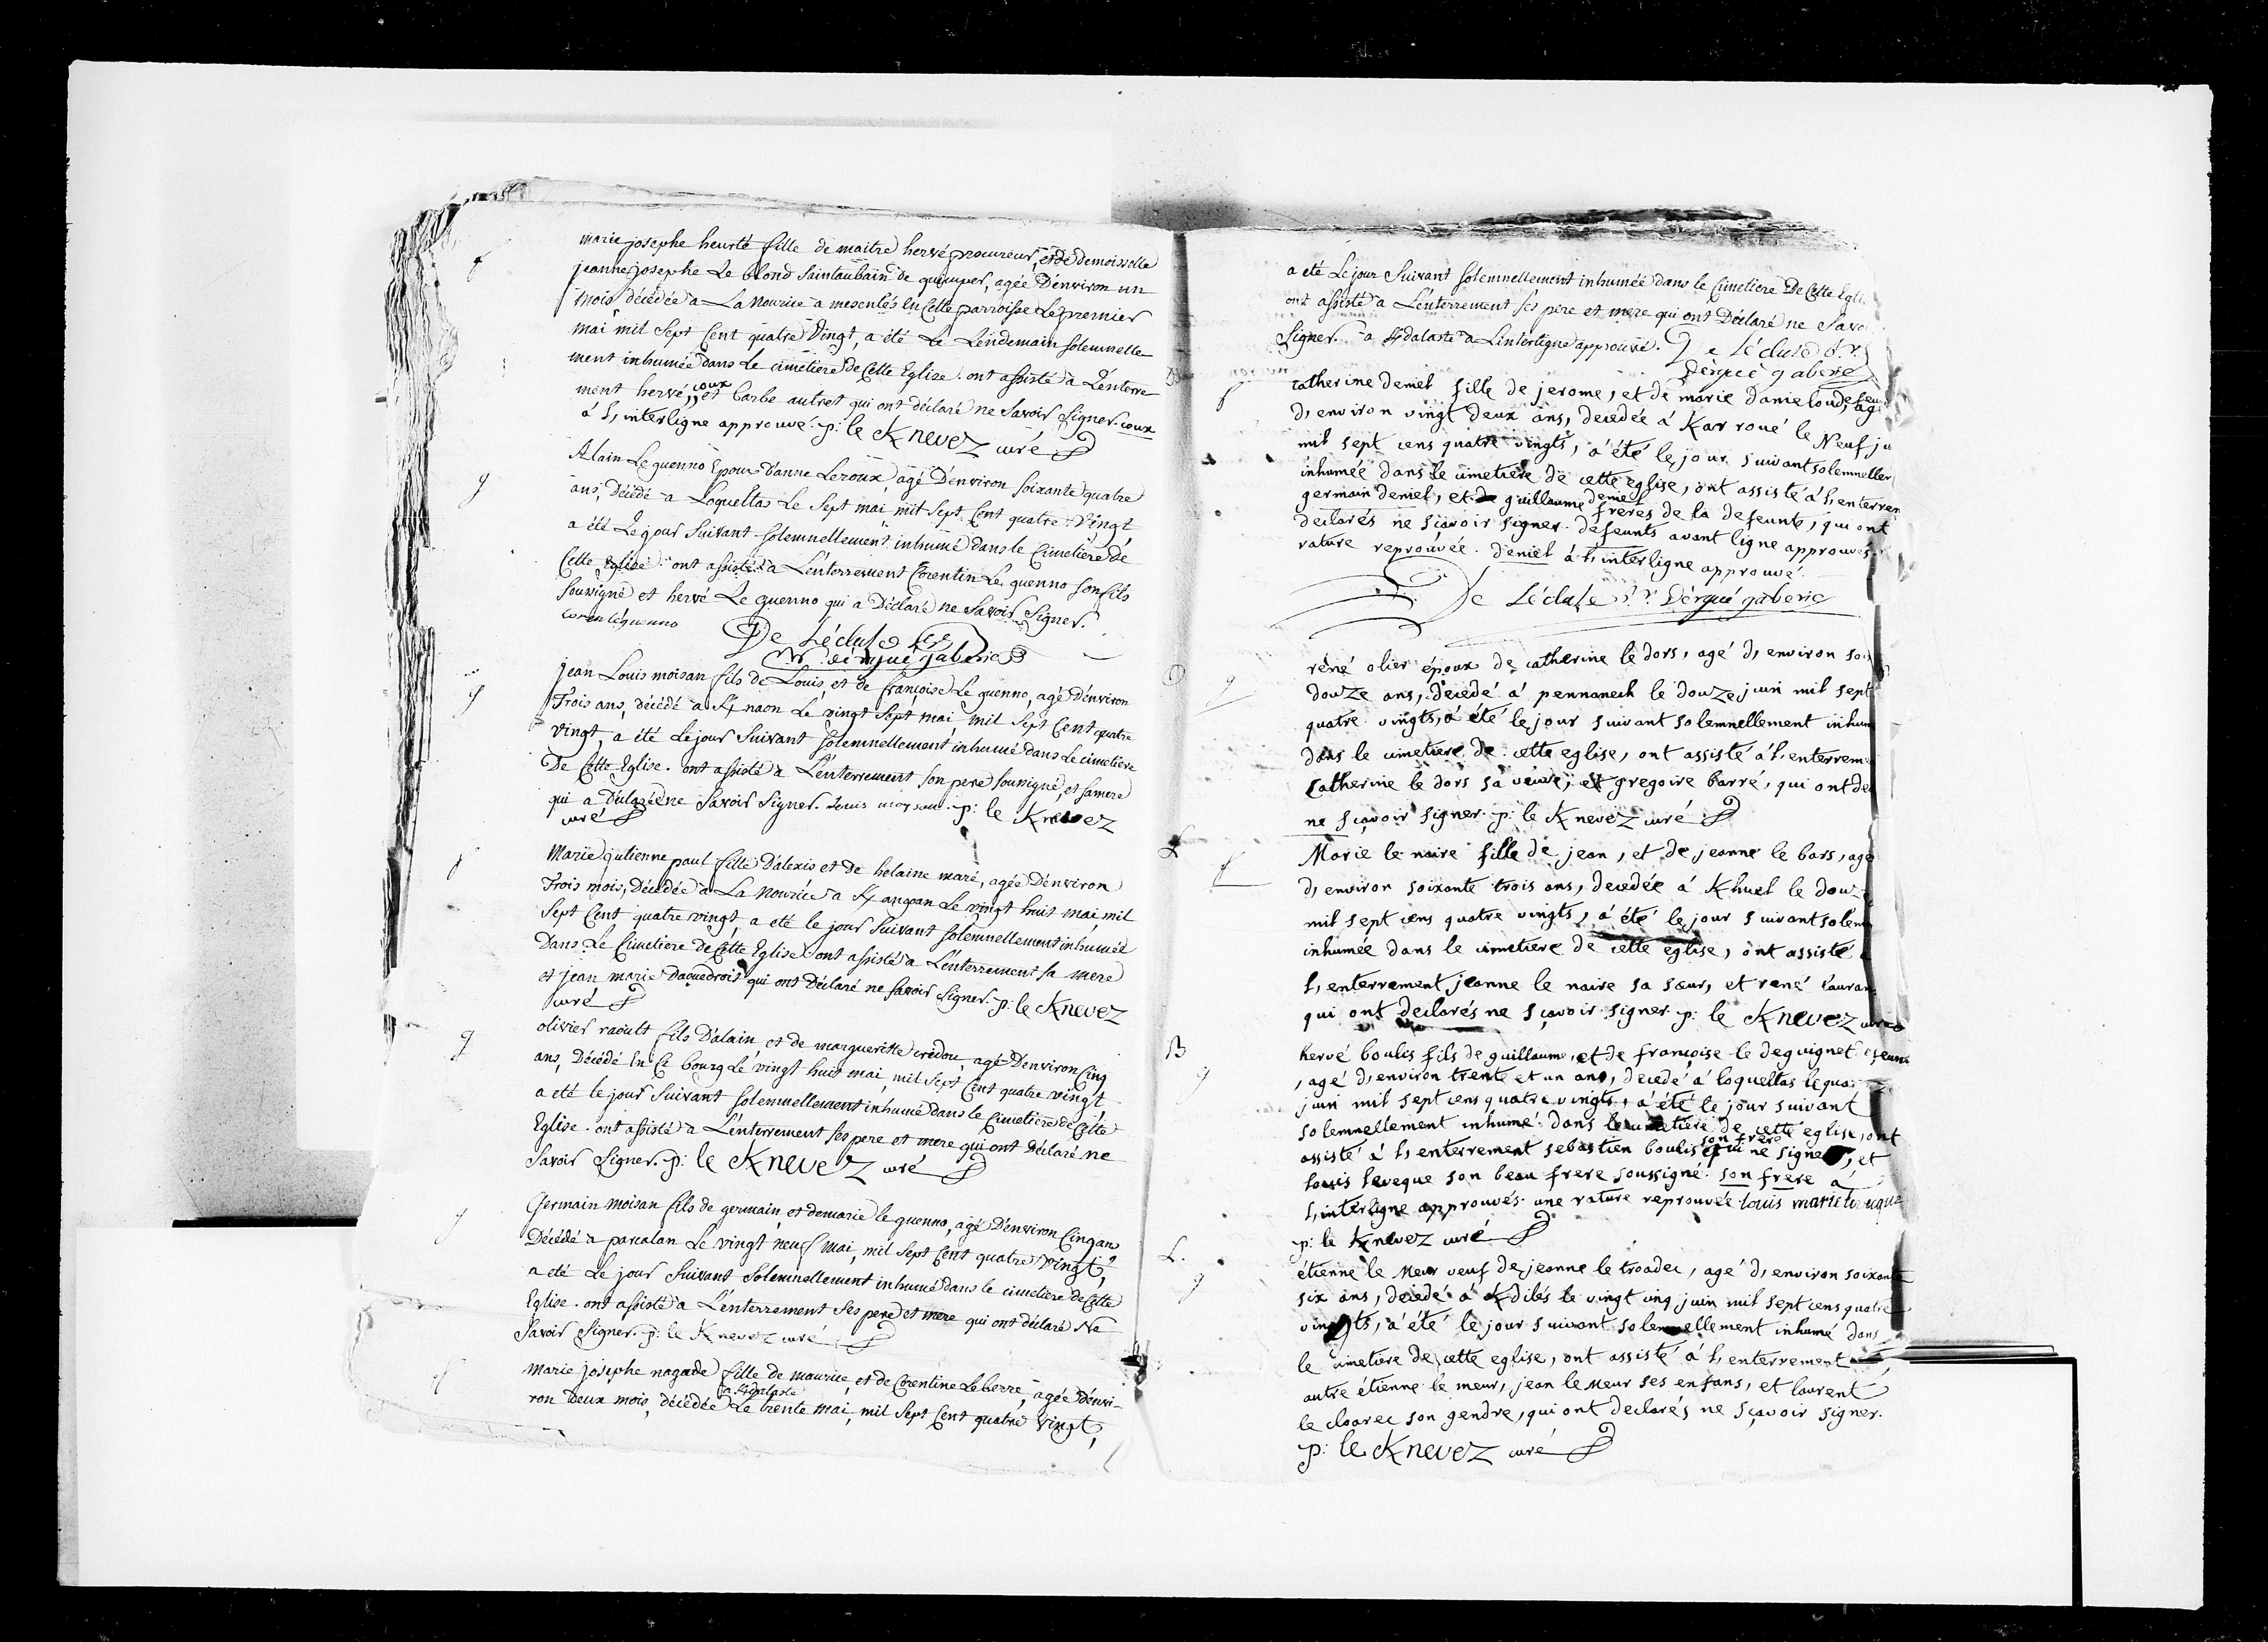 f
marie josephe heurté fille de maitre hervé procureur, et de demoisselle
jeanne josephe Le blond Saintaubain de quimper, agée D'énviron un
mois décédée a La Nourice a mesentés en Cette parroisse Le premier
mai mil Sept Cent quatre Vingt, a été Le Léndemain solemnelle
ment inhumée dans Le cimetiere de Cette Eglise. ont assisté a L'énterre
coux
ment hervé, et barbe autret qui ont déclaré ne Savoir Signer. coux
á l, interligne approuvé. p: le Knevez curé
g
Alain Le guenno Epoux d'anne Leroux, agé D'énviron soixante quatre
ans, Décédé a Loqueltas Le Sept mai mil Sept Cent quatre Vingt
a été Le jour Suivant solemnellement inhumé dans le Cimetiere de
Cette Eglise. ont assisté a L'énterrement Corentin Le guenno son fils
Sousigné et hervé Le guenno qui a Déclaré ne Savoir Signer.
coren léguenno
De Lécluse
Dérgué gaberic
g
Jean Louis moisan fils de Louis, et de françoise Le guenno, agé D'énviron
Trois ans, décédé a K naon Le vingt Sept mai, mil Sept Cent quatre
vingt, a été Le jour Suivant solemnellement inhumé dans Le cimetiere
De Cette Eglise. ont assisté a L'énterrement son pere sousigné, et sa mere
qui a Déclaré ne Savoir Signer. Louis moysan. p: le Knevez
curé
f
Marie julienne paul fille D'alexis et de helaine maré, agée D'énviron
Trois mois, Décédée a La Nourice a K angoan Le vingt huit mai, mil
Sept Cent quatre vingt, a eté le jour Suivant solemnellement inhumée
Dans Le Cimetiere de Cette Eglise ont assisté a L'énterrement sa mere
et jean marie Daouedroit qui ont Déclaré ne savoir Signer. p: le Knevez
curé
g
olivier raoult fils D'alain et de margueritte crédou, agé D'environ Cinq
ans, Décédé En Ce bourg Lé vingt huit mai, mil Sept Cent quatre vingt
a eté le jour Suivant solemnellement inhumé dans le Cimetiere de Cette
Eglise. ont assisté a L'énterrement ses pere et mere qui ont Déclaré ne
Savoir Signer. p: le Knevez curé
g
Germain moisan fils de germain, et de marie le guenno, agé D'énviron Cinq ans
Décédé a parcalan Le vingt neuf mai, mil Sept Cent quatre vingt,
a été Le jour Suivant Solemnellement inhumé dans le cimetiere de Cette
Eglise. ont assisté a L'énterrement Ses pere et mere qui ont déclaré Ne
Savoir Signer. p: le Knevez curé
f
Marie josephe nagade fille de maurice, et de Corentine Leberre, agée D'énvi-
a K dalaste
ron Deux mois, décédée Le trente mai, mil Sept Cent quatre vingt,
a été Le jour Suivant solemnellement inhumée dans le Cimetiere De Cette Egli
ont assisté a L'énterrement ses pere et mere qui ont Déclaré ne Savo
Signer. a K dalaste a L'interligne approuvé. De Lécluse
Dérgué gaberic
f
catherine deniel fille de jerome, et de marie danieloud, defeun agé
d, environ vingt deux ans, decedée á Kar roué le Neuf ju
mil sept cens quatre vingts, á été le jour suivant solemnellem
inhumée dans le cimetiere de cette eglise, ont assisté á l, enterrem
deniel
germain deniel, et guillaume freres de la defeunte, qui ont
declarés ne sçavoir signer. défeunts avant ligne approuvés
rature reprouvée. deniel á l, interligne approuvé.
De Lécluse Dérgué gaberic
g
réné olier époux de catherine le dors, agé d, environ soi
douze ans, décédé á pennanech le douze juin mil sept
quatre vingts, á été le jour suivant solemnellement inhum
dans le cimetiere de cette eglise, ont assisté á l, enterreme
Catherine le dors sa veuve, et gregoire barré, qui ont de
ne sçavoir signer. p: le Knevez curé
L
f
Marie le naire fille de jean, et de jeanne le bars, agé
d, environ soixante trois ans, decedée á Khuel le dou
mil sept cens quatre vingts, á été le jour suivant solem
inhumée dans le cimetiere de cette eglise, ont assisté
l, enterrement jeanne le naire sa sœur, et rené lauran
qui ont declarés ne sçavoir signer p: le Knevez curé
B
g
hervé boulis fils de guillaume, et de françoise le deguignet defeunt
, agé d, environ trente et un ans, decedé á loqueltas le qua
juin mil sept cens quatre vingts, á été le jour suivant
solemnellement inhumé dans le cimetiere de cette eglise, ont
son frere
assisté á l, enterrement sebastien boulis qui ne signe, et
louis leveque son beau frere soussigné. son frere á
l, interligne approuvés. une rature reprouvée. louis marie leveque
p: le Knevez curé
L.
g
étienne le Meur veuf de jeanne le troadec, agé d, environ soixante
six ans, décedé á K dilés le vingt cinq juin mil sept cens quatre
vingts, á été le jour suivant solemnellement inhumé dans
le cimetiere de cette eglise, ont assisté á l, enterrement
autre étienne le meur, jean le Meur ses enfans, et laurent
le cloarec son gendre, qui ont declarés ne sçavoir signer.
p: le Knevez curé